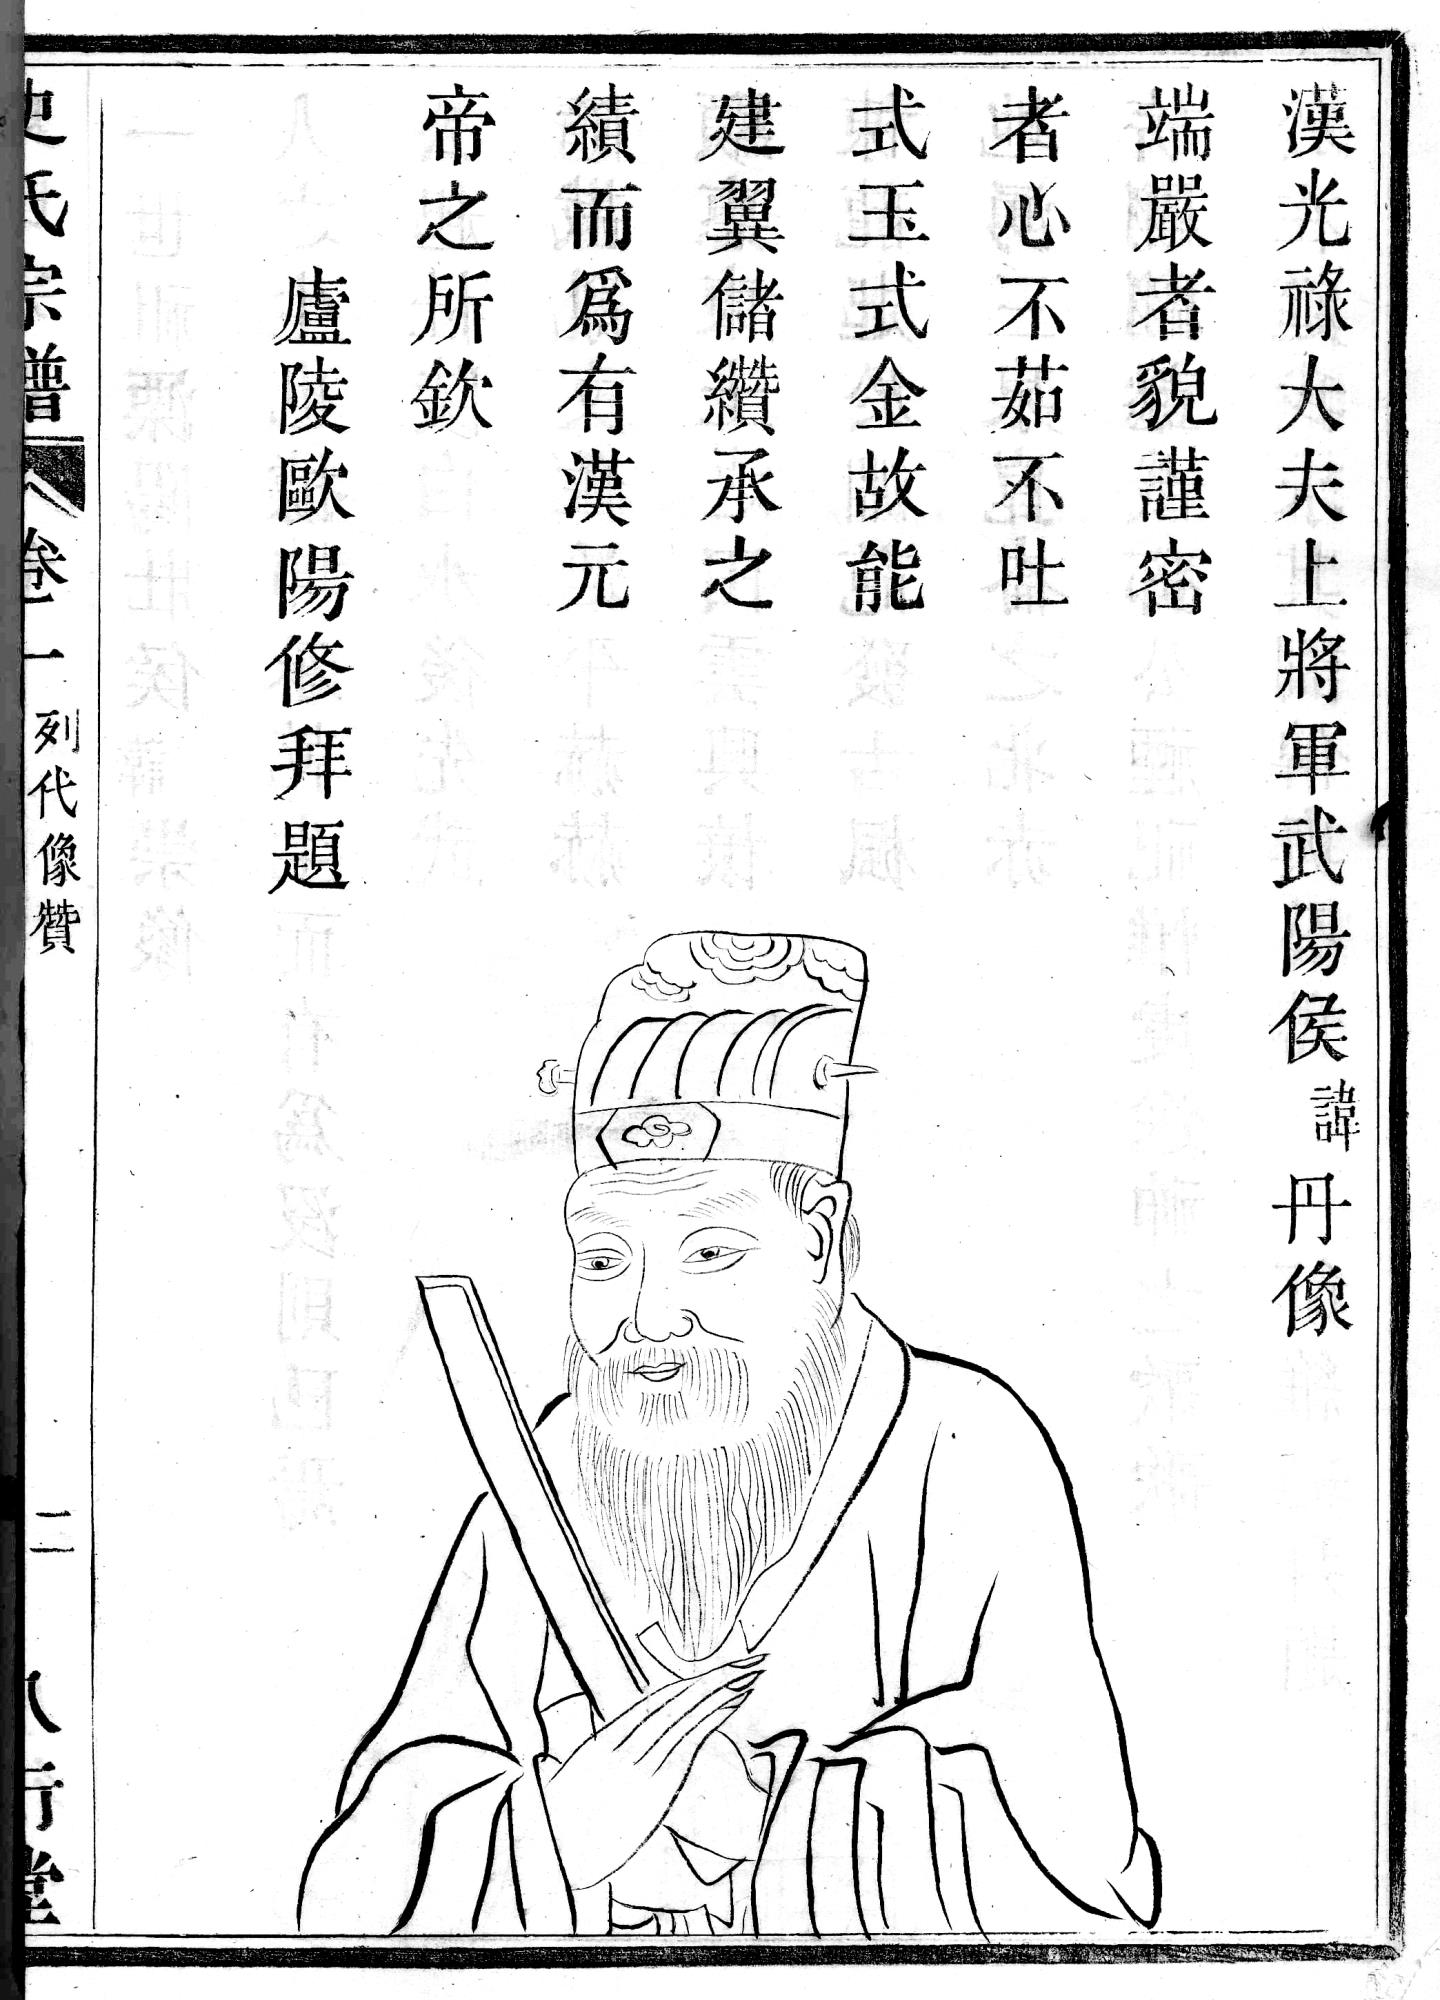 漢光祿大夫上將軍武陽侯諱丹像
端嚴者貌謹密
者心不茹不吐
式玉式金故能
建翼儲纘承之
績而爲有漢元
帝之所欽
廬陵歐陽修拜題
史氏宗譜
卷一
列代像贊
二
八行堂